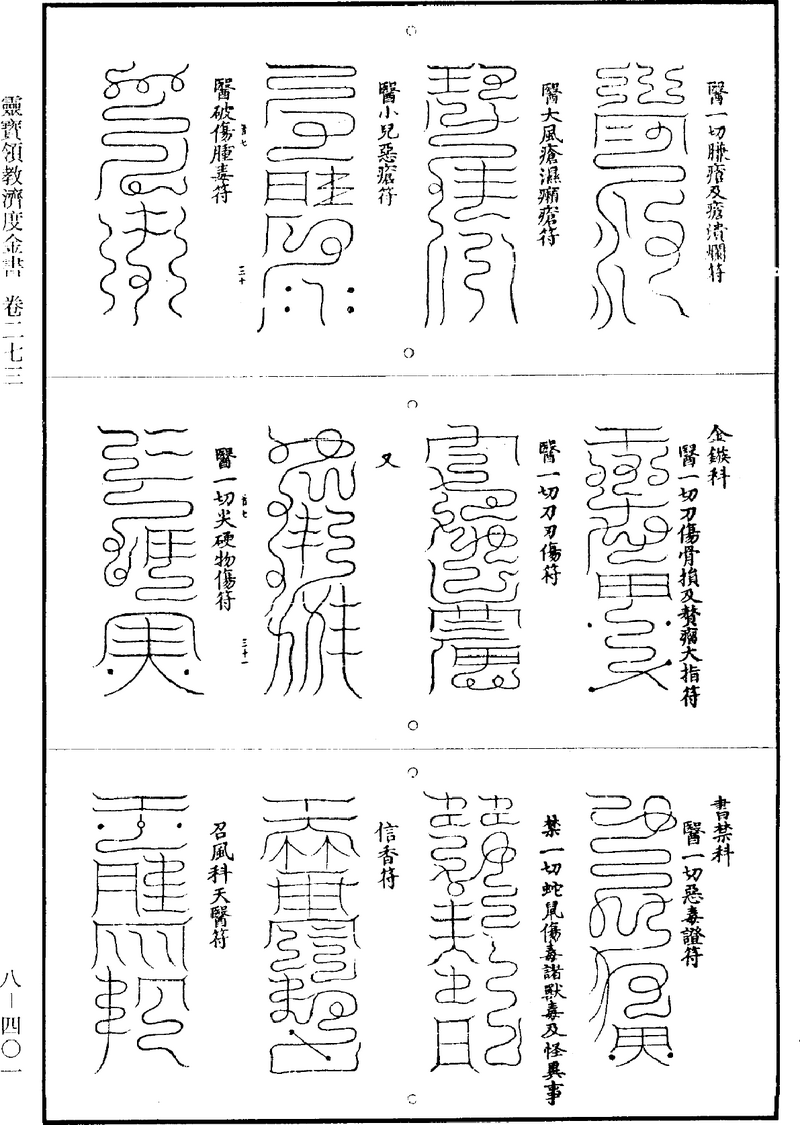 靈寶領教濟度金書 卷二七三
八－四〇一
醫一切臁瘡及瘡潰爛符
醫大風瘡濕癩瘡符
醫小兒惡瘡符
醫破傷腫毒符
三十
金鏃科
醫一切刀傷骨損及贅瘤大指符
醫一切刀刃傷符
又
醫一切尖硬物傷符
三十一
書禁科
醫一切惡毒證符
禁一切蛇鼠傷毒諸獸毒及怪異事
信香符
召風科天醫符